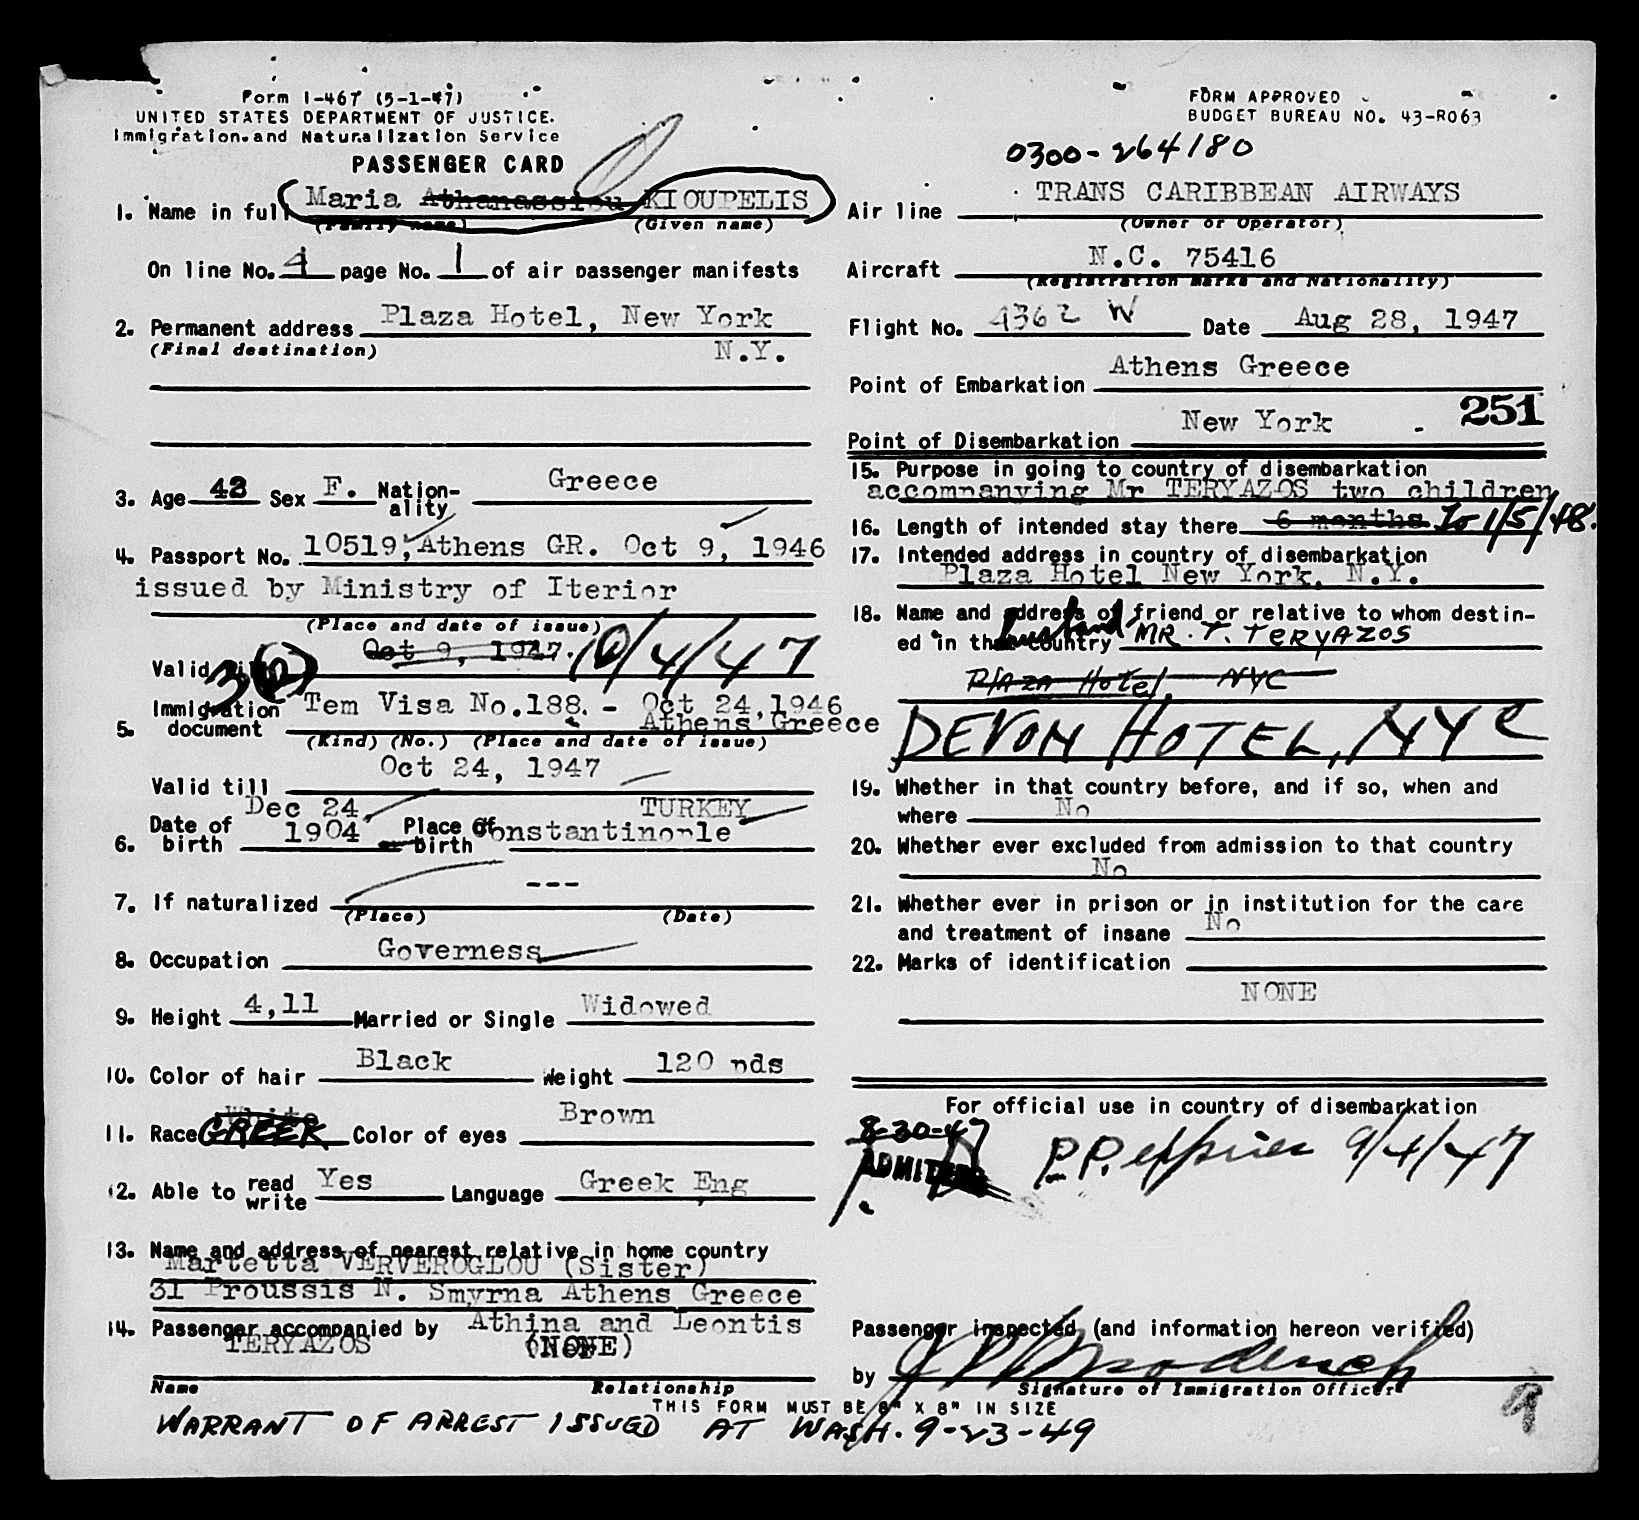 Form I-467 (5-1-47)
UNITED STATES DEPARTMENT OF JUSTICE.
Immigration and Naturalization Service
PASSENGER CARD
1. Name in full Maria Athanassiou KIOUPELIS
(Family name) (Given name)
On line No. 4 page No. 1 of air passenger manifests
2. Permanent address Plaza Hotel, New York
(Final destination) N.Y.
3. Age 42 Sex F. Nation-ality Greece
4. Passport No. 10519, Athens GR. Oct 9, 1946
issued by Ministry of Iterior
(Place and date of issue)
Valid till Oct 9, 1947. 10/4/47
5. Immigration document Tem Visa No.188. - Oct 24,1946
Athens Greece
(Kind) (No.) (Place and date of issue)
Valid till Oct 24, 1947
6. Date of birth Dec 24, 1904 Place of birth Constantinople TURKEY
7. If naturalized ---
(Place) (Date)
8. Occupation Governess
9. Height 4,11 Married or Single Widowed
10. Color of hair Black Weight 120 pds
11. Race White GREEK Color of eyes Brown
12. Able to read write Yes Language Greek Eng
13. Name and address of nearest relative in home country
Martetta VERVEROGLOU (Sister)
31 Proussis N. Smyrna Athens Greece
14. Passenger accompanied by Athina and Leontis
TERYAZOS (NONE)
Name Relationship
THIS FORM MUST BE 8" X 8" IN SIZE
WARRANT OF ARREST ISSUED AT WASH. 9-23-49
FORM APPROVED
BUDGET BUREAU NO. 43-R063
0300-264180
Air line TRANS CARIBBEAN AIRWAYS
(Owner or Operator)
Aircraft N.C. 75416
(Registration marks and Nationality)
Flight No. 4362 W Date Aug 28, 1947
Point of Embarkation Athens Greece
Point of Disembarkation New York 251
15. Purpose in going to country of disembarkation
accompanying Mr TERYAZOS two children
16. Length of intended stay there 6 months To 1/5/48.
17. Intended address in country of disembarkation
Plaza Hotel New York, N.Y.
18. Name and address of friend or relative to whom destin-
ed in that country husband MR. T. TERYAZOS
PLAZA Hotel, NYC
DEVON HOTEL, NYC
19. Whether in that country before, and if so, when and
where No
20. Whether ever excluded from admission to that country
No
21. Whether ever in prison or in institution for the care
and treatment of insane No
22. Marks of identification
NONE
For official use in country of disembarkation
8-30-47
ADMITTED
P.P. expires 9/4/47
Passenger inspected (and information hereon verified)
by
Signature of Immigration Officer
9